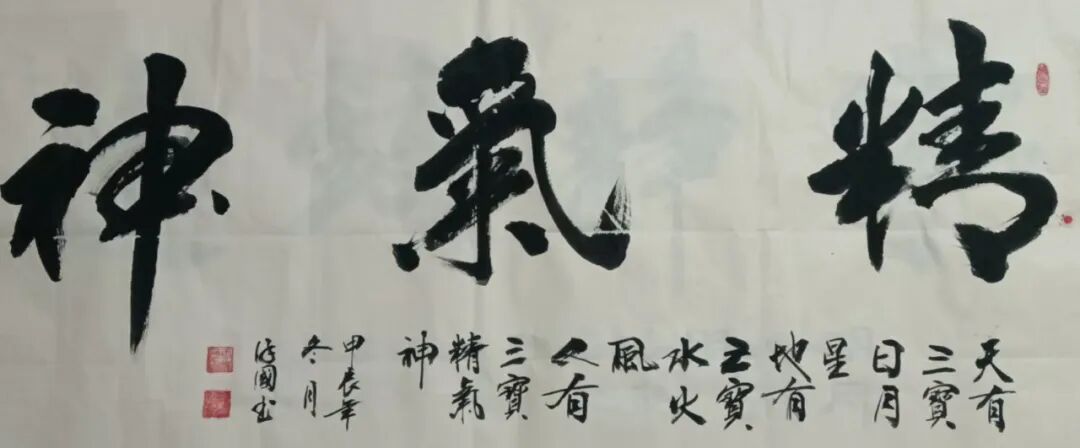 精氣神
天有
三寶
日月
星
地有
三寶
水火
風
人有
三寶
精氣
神
甲辰年
冬月
國书